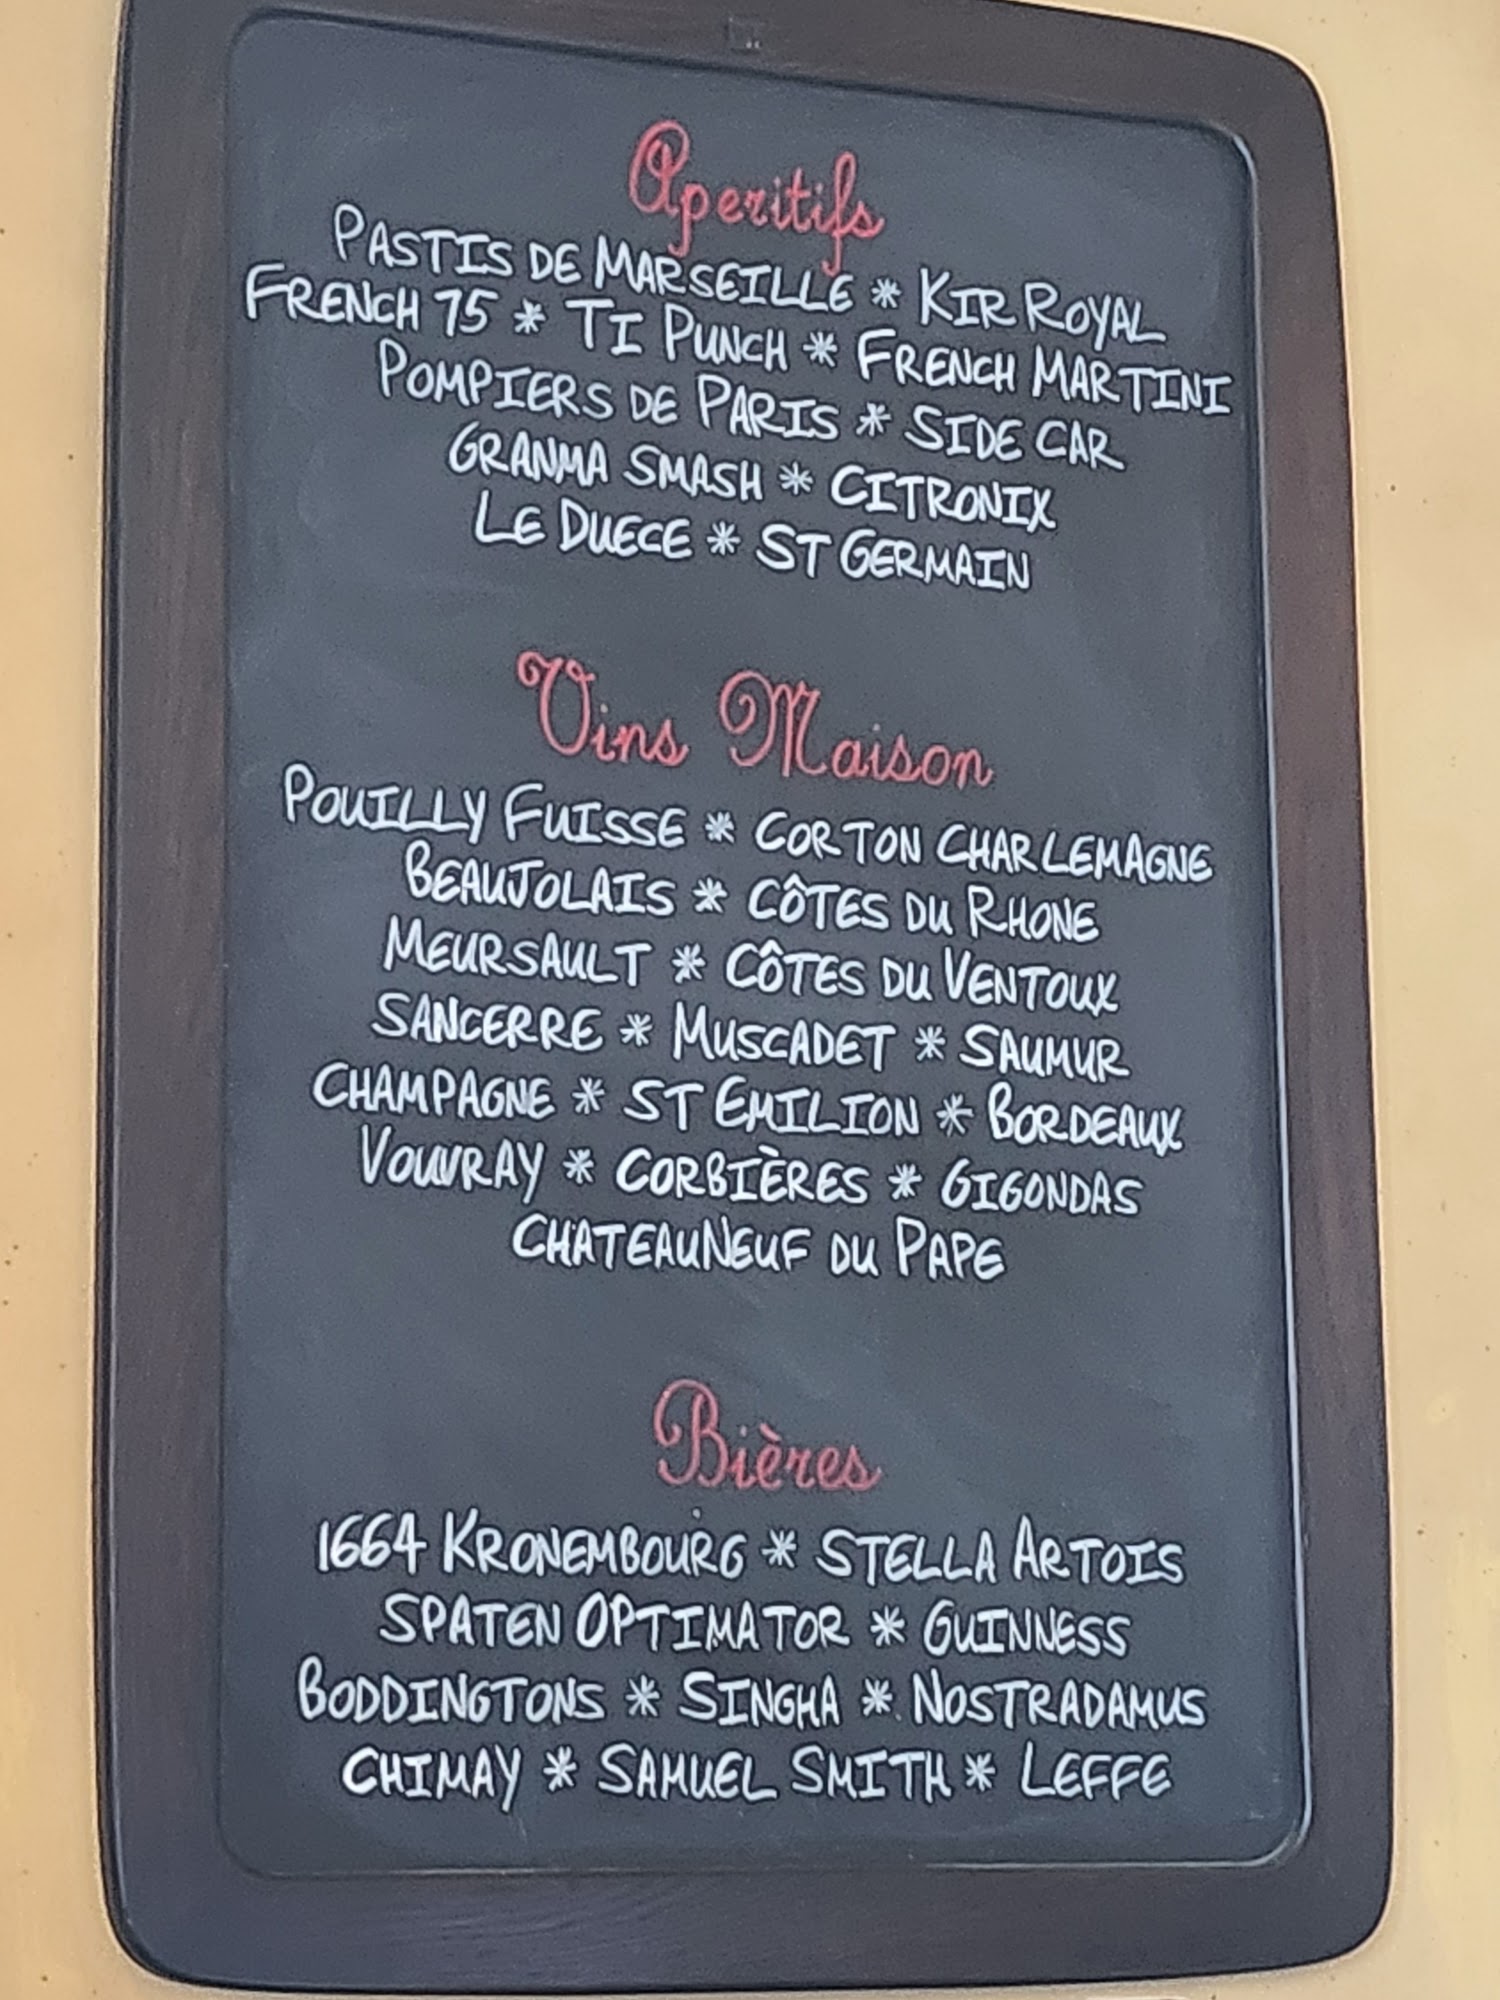 Aperitifs
PASTIS DE MARSEILLE * KIR ROYAL
FRENCH 75 * TI PUNCH * FRENCH MARTINI
POMPIERS DE PARIS * SIDE CAR
GRANMA SMASH * CITRONIX
LE DUECE * ST GERMAIN
Vins Maison
POUILLY FUISSE * CORTON CHARLEMAGNE
BEAUJOLAIS * CÔTES DU RHONE
MEURSAULT * CÔTES DU VENTOUX
SANCERRE * MUSCADET * SAUMUR
CHAMPAGNE * ST EMILION * BORDEAUX
VOUVRAY * CORBIÈRES * GIGONDAS
CHATEAUNEUF DU PAPE
Bières
1664 KRONEMBOURG * STELLA ARTOIS
SPATEN OPTIMATOR * GUINNESS
BODDINGTONS * SINGHA * NOSTRADAMUS
CHIMAY * SAMUEL SMITH * LEFFE